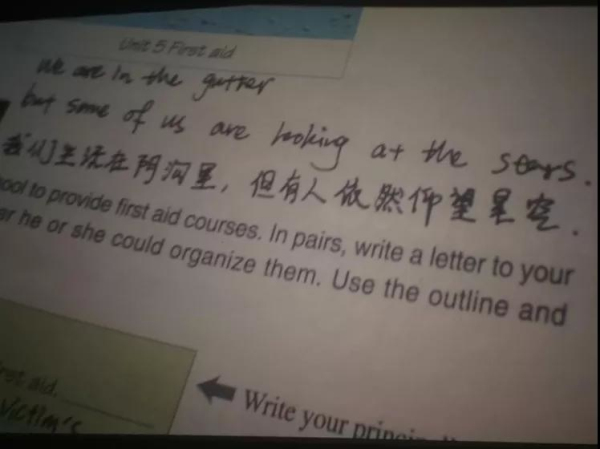 Unit 5 First aid
we are in the gutter
but some of us are looking at the stars.
我们生活在阴沟里，但有人依然仰望星空.
ool to provide first aid courses. In pairs, write a letter to your
er he or she could organize them. Use the outline and
rst aid.
victim's
Write your princi